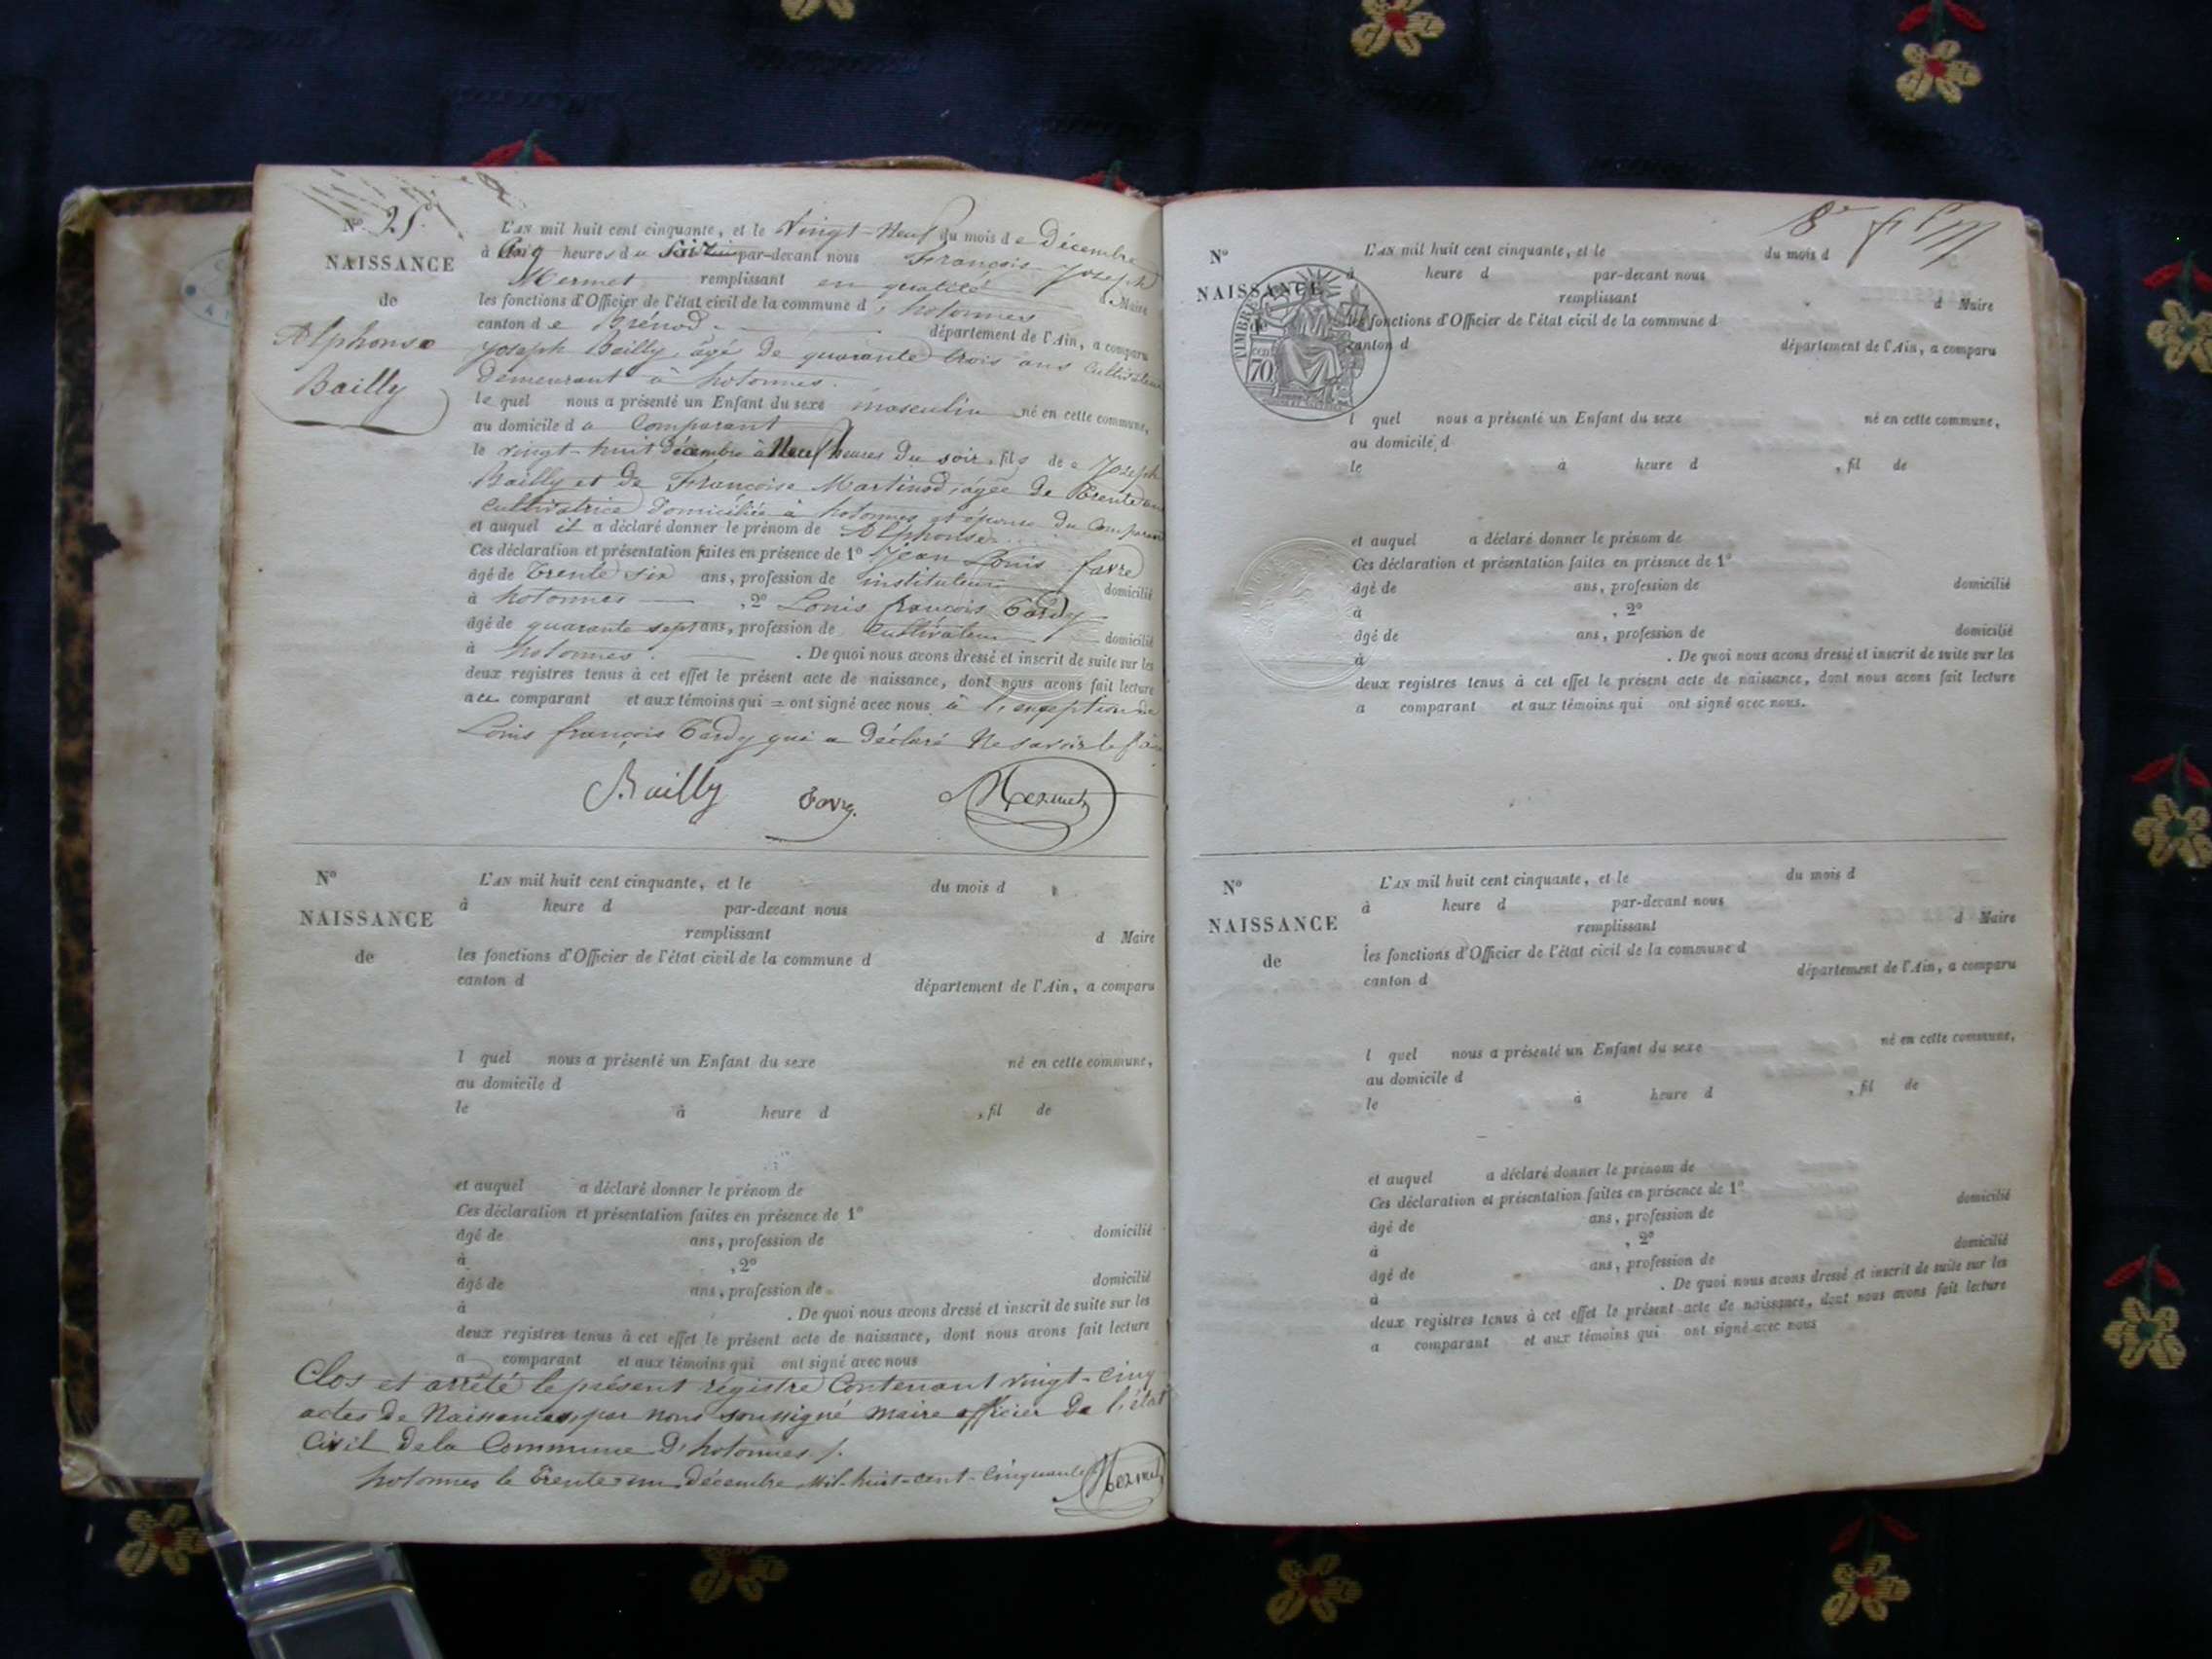 Nº 25.
NAISSANCE
de
Alphonse
Bailly
L'AN mil huit cent cinquante, et le Vingt-Neuf du mois de Décembre
à Cinq heures du Soir par-devant nous François Joseph
Mermet remplissant en qualité d Maire
les fonctions d'Officier de l'état civil de la commune d'hotonnes
canton de Brénod département de l'Ain, a comparu
Joseph Bailly, âgé de quarante trois ans Cultivateur
demeurant à hotonnes.
lequel nous a présenté un Enfant du sexe masculin né en cette commune,
au domicile du Comparant
le vingt-huit décembre à Neuf heures du soir, fils de Joseph
Bailly et de Françoise Martinod, âgée de trente ans
Cultivatrice domiciliée à hotonnes et épouse du Comparant
et auquel il a déclaré donner le prénom de Alphonse
Ces déclaration et présentation faites en présence de 1º Jean Louis favre
âgé de Trente six ans, profession de instituteur domicilié
à hotonnes , 2º Louis françois Tardy
âgé de quarante sept ans, profession de Cultivateur domicilié
à hotonnes. . De quoi nous avons dressé et inscrit de suite sur les
deux registres tenus à cet effet le présent acte de naissance, dont nous avons fait lecture
au comparant et aux témoins qui = ont signé avec nous à l'exception de
Louis françois Tardy qui a déclaré Ne savoir le faire
Bailly Favre Mermet
Nº
NAISSANCE
de
L'AN mil huit cent cinquante, et le du mois d
à heure d par-devant nous
remplissant d Maire
les fonctions d'Officier de l'état civil de la commune d
canton d département de l'Ain, a comparu
l quel nous a présenté un Enfant du sexe né en cette commune,
au domicile d
le à heure d , fil de
et auquel a déclaré donner le prénom de
Ces déclaration et présentation faites en présence de 1º
âgé de ans, profession de domicilié
à , 2º
âgé de ans, profession de domicilié
à . De quoi nous avons dressé et inscrit de suite sur les
deux registres tenus à cet effet le présent acte de naissance, dont nous avons fait lecture
a comparant et aux témoins qui ont signé avec nous
Clos et arrêté le présent régistre Contenant vingt-cinq
actes de Naissances, par nous soussigné maire officier de l'état
Civil de la Commune d'hotonnes /.
hotonnes le trente un décembre Mil-huit-cent-Cinquante Mermet
8e
Nº
NAISSANCE
TIMBRE
cen
70
L'AN mil huit cent cinquante, et le du mois d
à heure d par-devant nous
remplissant d Maire
les fonctions d'Officier de l'état civil de la commune d
canton d département de l'Ain, a comparu
l quel nous a présenté un Enfant du sexe né en cette commune,
au domicile d
le à heure d , fil de
et auquel a déclaré donner le prénom de
Ces déclaration et présentation faites en présence de 1º
âgé de ans, profession de domicilié
à , 2º
âgé de ans, profession de domicilié
à . De quoi nous avons dressé et inscrit de suite sur les
deux registres tenus à cet effet le présent acte de naissance, dont nous avons fait lecture
a comparant et aux témoins qui ont signé avec nous.
Nº
NAISSANCE
de
L'AN mil huit cent cinquante, et le du mois d
à heure d par-devant nous
remplissant d Maire
les fonctions d'Officier de l'état civil de la commune d
canton d département de l'Ain, a comparu
l quel nous a présenté un Enfant du sexe né en cette commune,
au domicile d
le à heure d , fil de
et auquel a déclaré donner le prénom de
Ces déclaration et présentation faites en présence de 1º
âgé de ans, profession de domicilié
à , 2º
âgé de ans, profession de domicilié
à . De quoi nous avons dressé et inscrit de suite sur les
deux registres tenus à cet effet le présent acte de naissance, dont nous avons fait lecture
a comparant et aux témoins qui ont signé avec nous